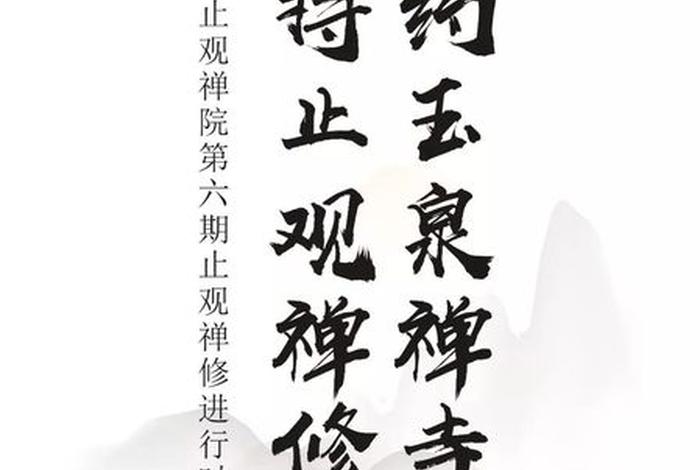 约玉泉禅寺
持止观禅修
止观禅院第六期止观禅修进行